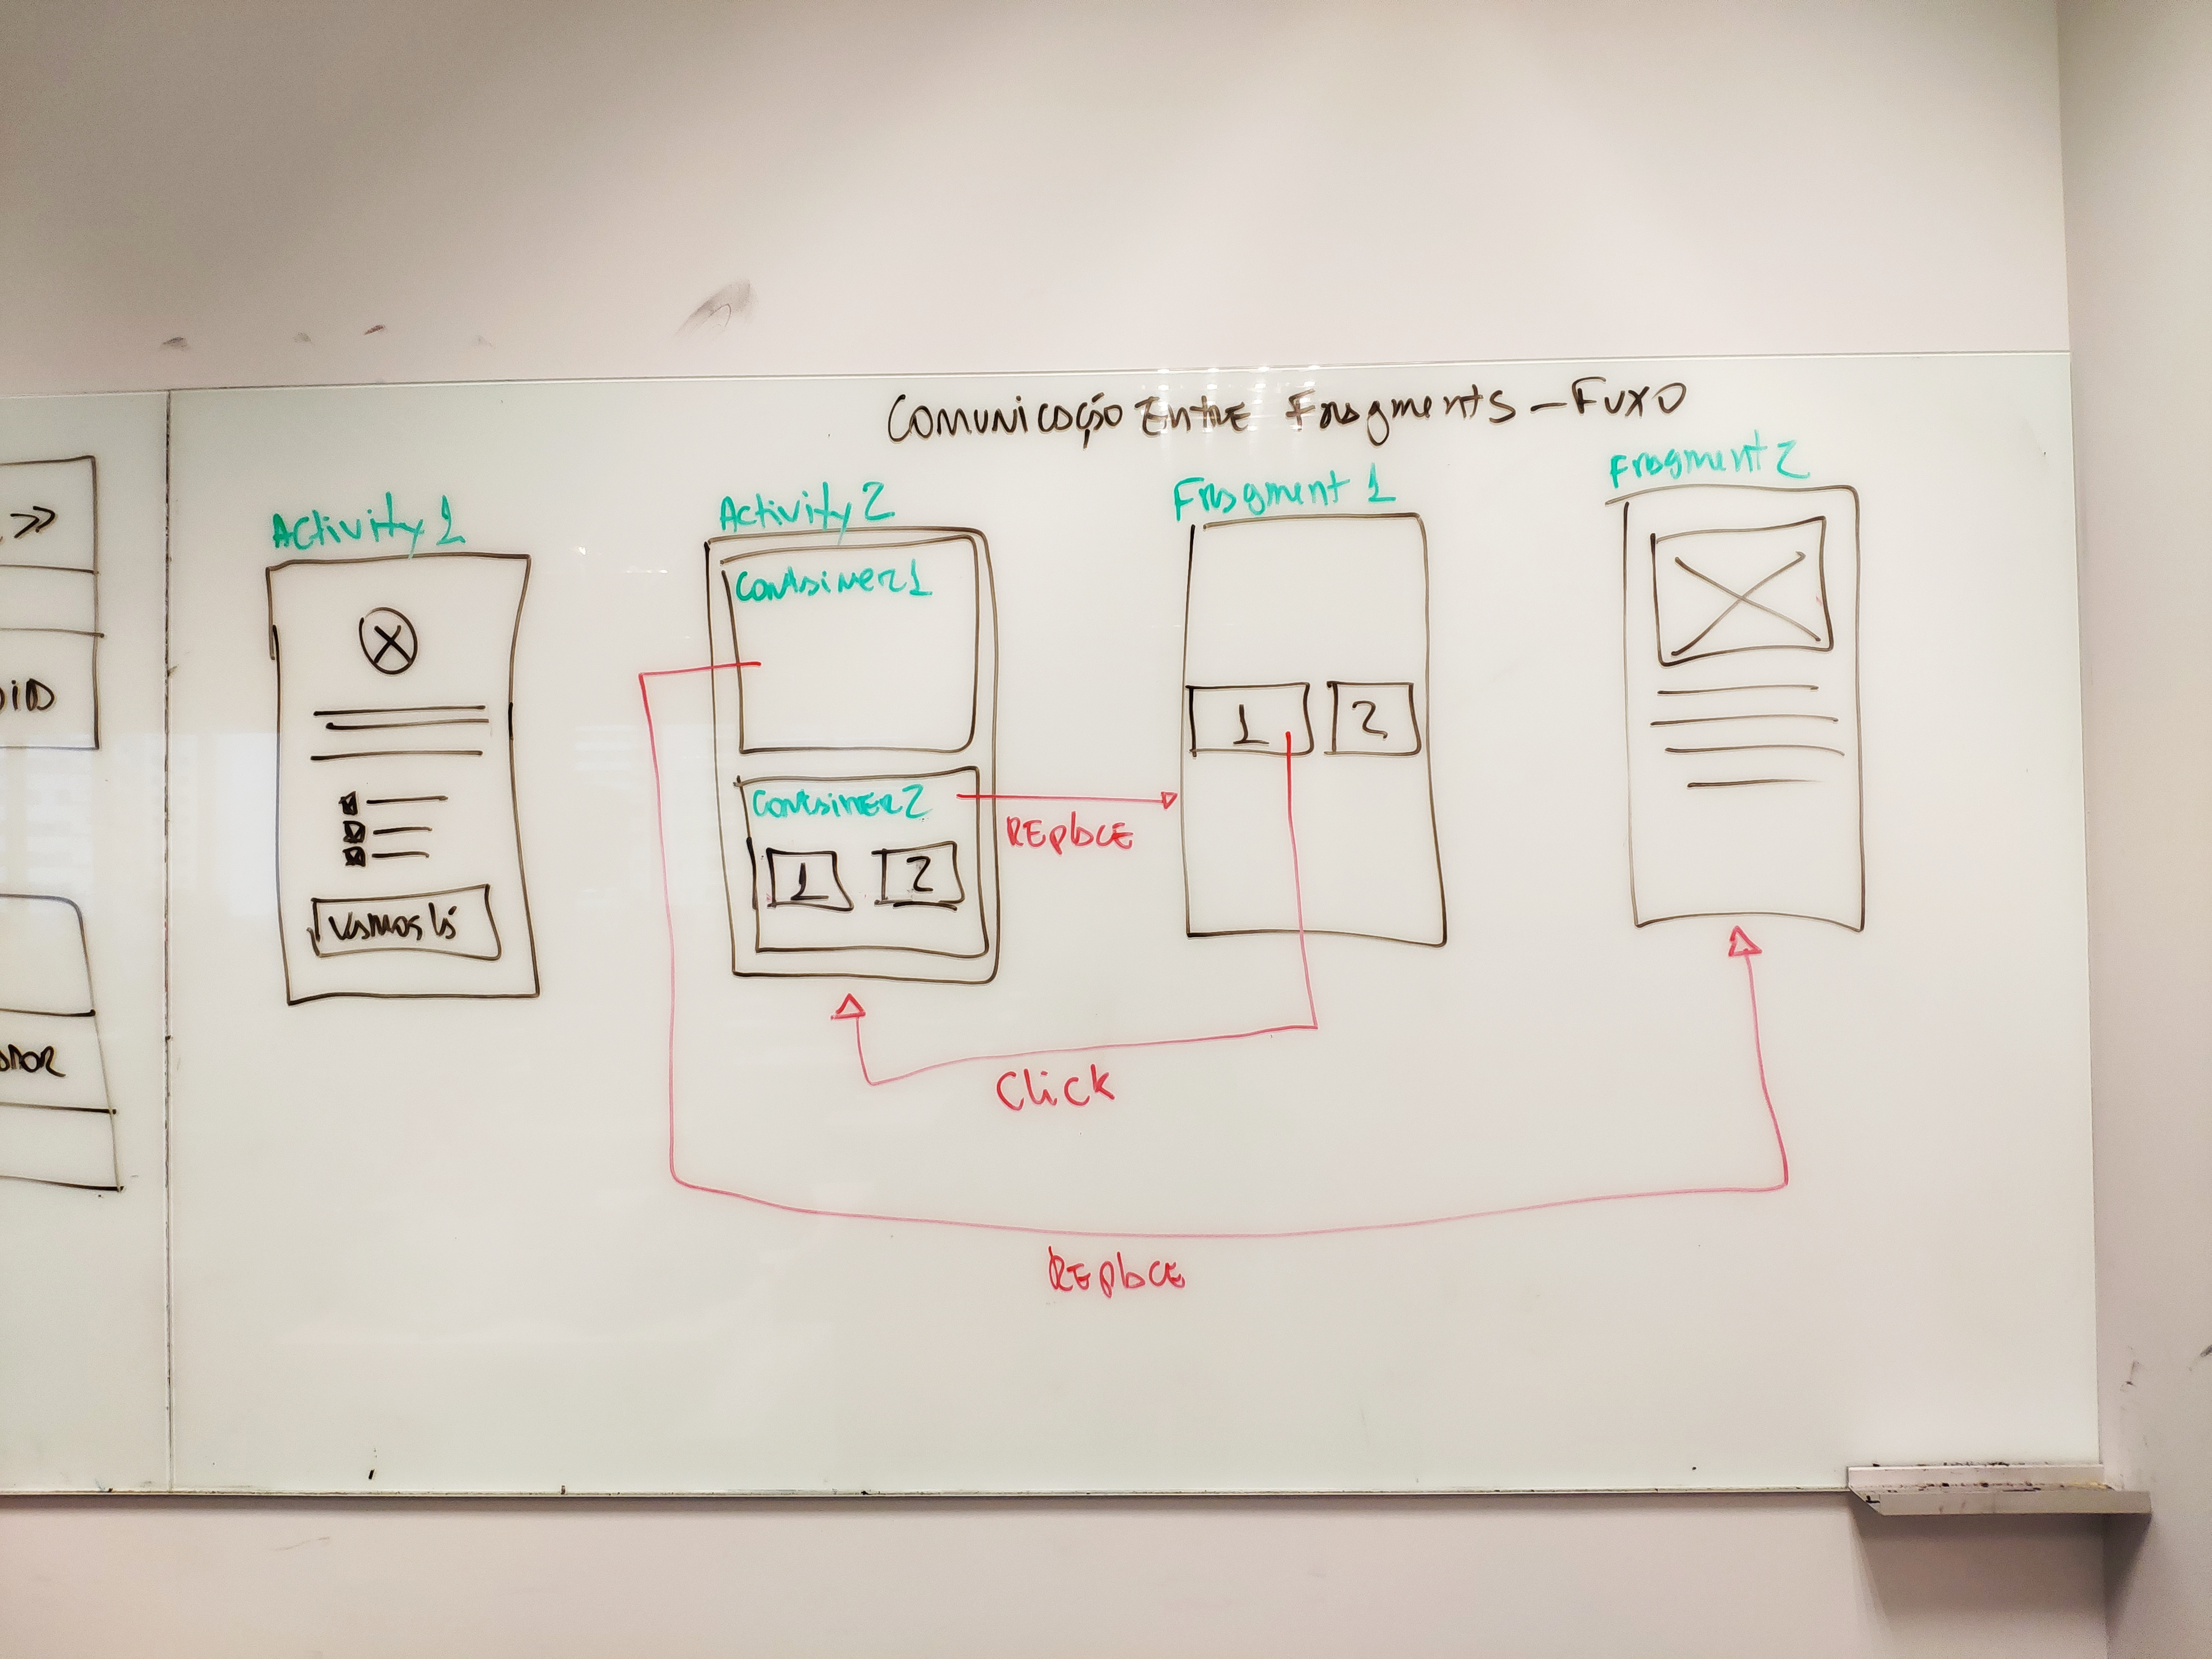 Comunicação Entre Fragments - Fuxo
Activity 1
Vamos lá
Activity 2
Container 1
Container 2
1 2
Replace
Fragment 1
1 2
Fragment 2
Click
Replace
>>